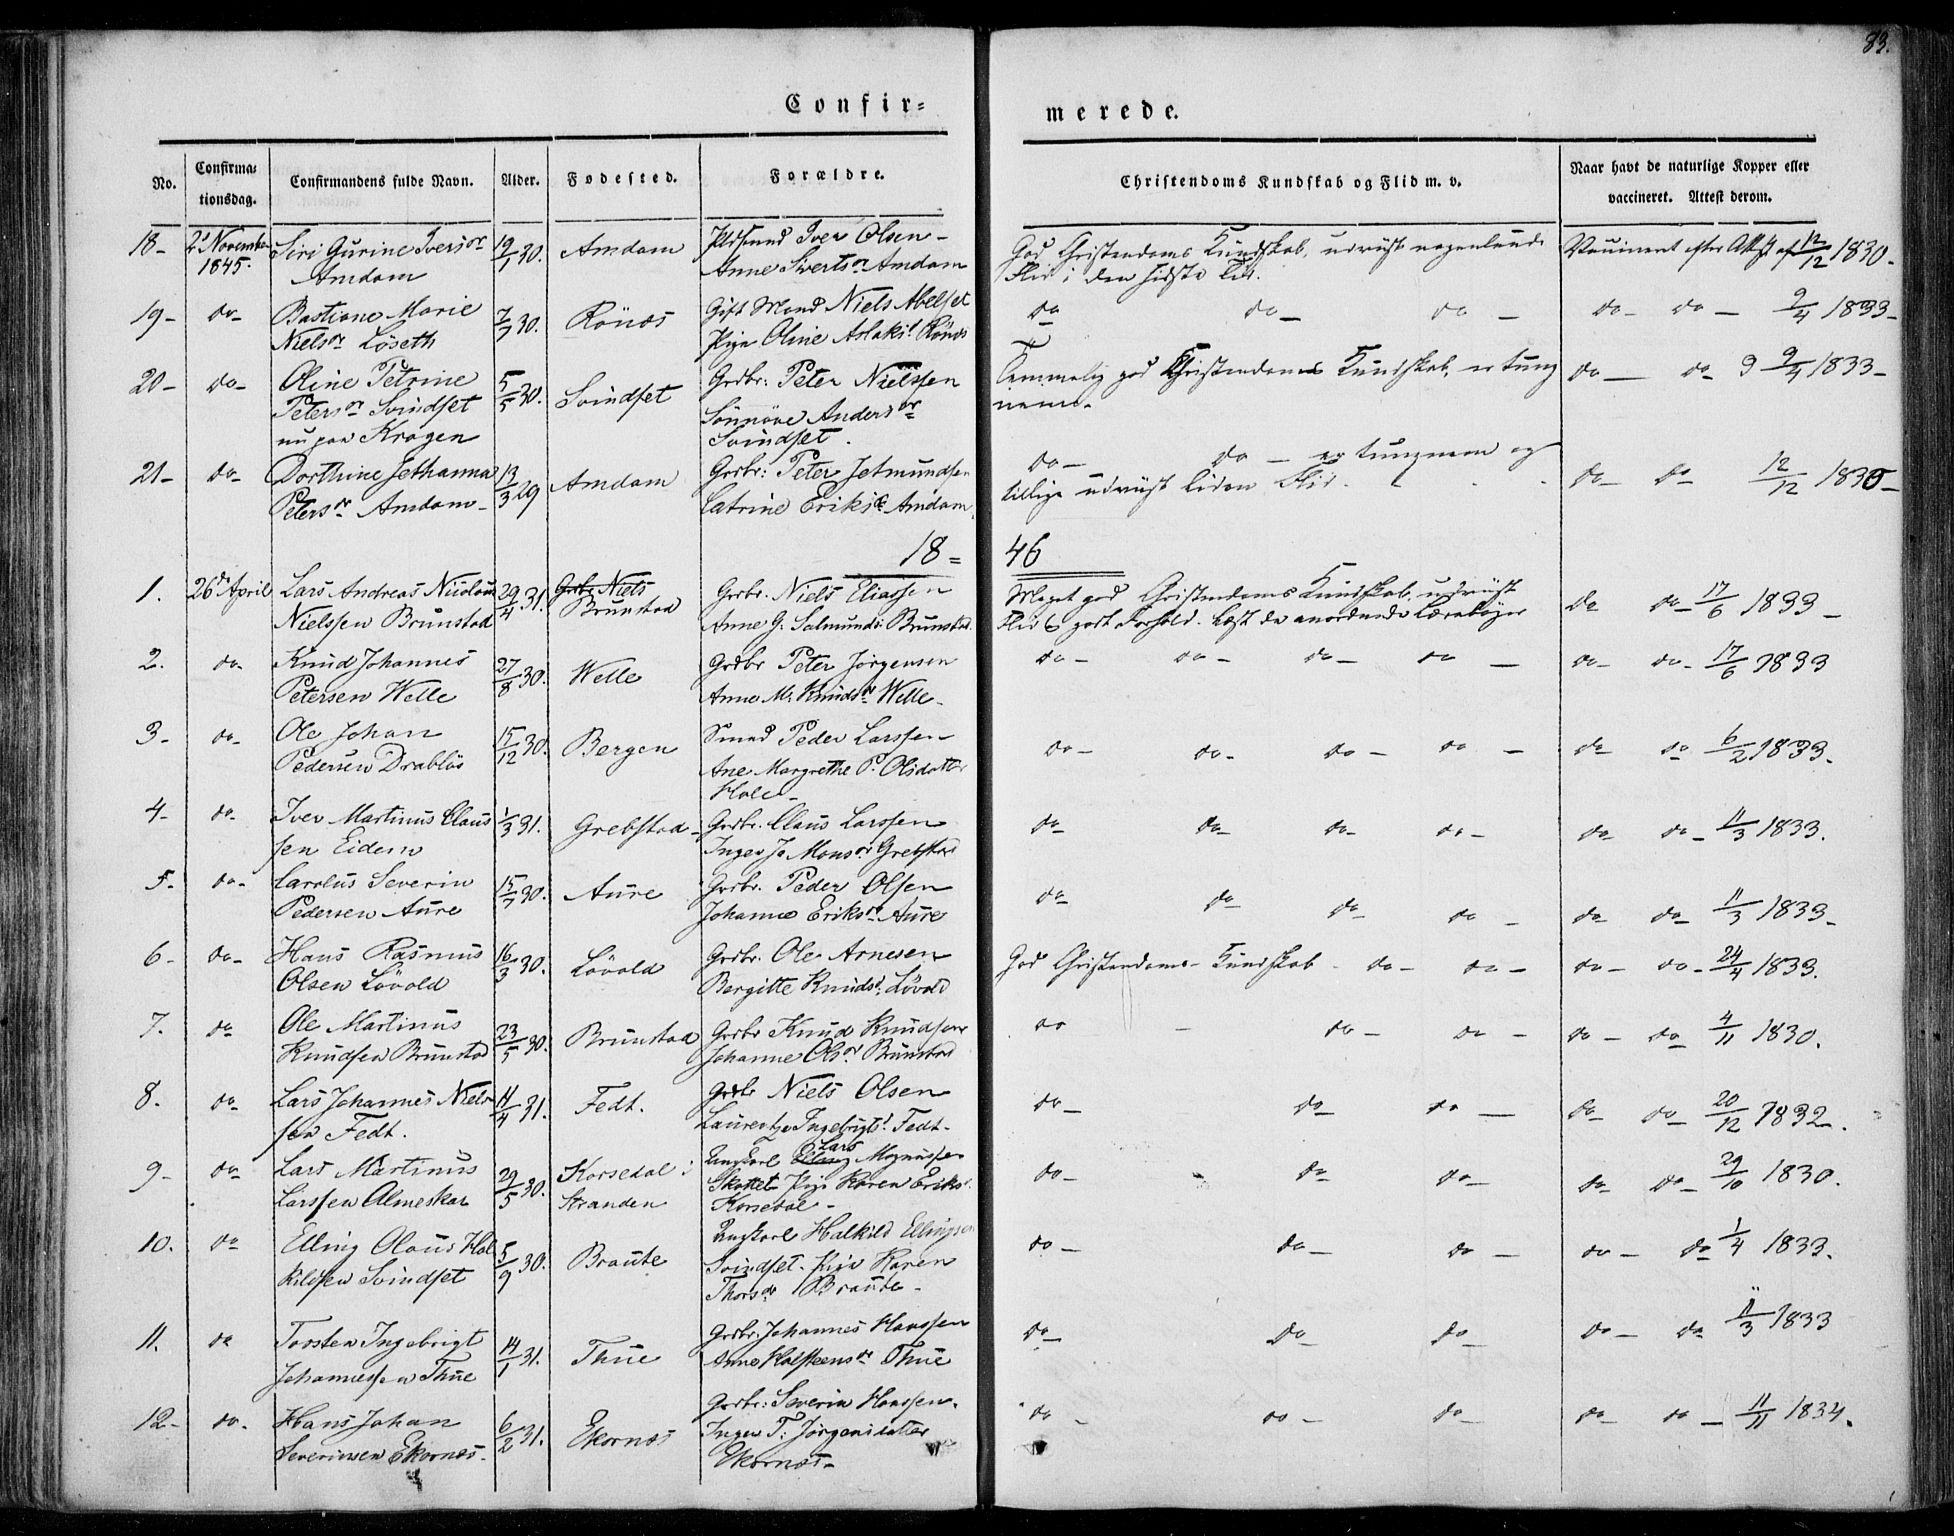 83.
Confir-
merede.
No.
Confirma-
tionsdag.
Confirmandens fulde Navn.
Alder.
Fødested.
Forældre.
Christendoms Kundskab og Flid m. v.
Naar havt de naturlige Kopper eller
vaccineret. Attest derom.
18- 2d November Siri Gurine Iversdr 19/1 30. Amdam Iver Olsen-
1845. Amdam Anne Sivertsdr Amdam
God Christendoms Kundskab, udviist nogenlunde
Flid i den sidste Tid.
Vaccineret efter Attest af 12/12 1830.
19- do- Bastiane Marie 7/7 30. Rönes Gift Mand Niels Abelset
Nielsdr Löseth Pige Oline Aslaksd Rönes
do do- do - do- do- 9/4 1833-
20- do- Oline Petrine 5/5 30. Svindset Grdbr: Peter Nielssen
Petersdr Svindset Sönnöve Andersdr
nu paa Kragen Svindset.
Temmelig god Christendoms Kundskab, er tung
nem-
do- do 9/4 1833-
21- do- Dorthine Jethanna 13/3 29 Amdam Grdbr: Peter Jetmundsen
Petersdr Amdam- Catrine Eriksd Amdam
do- do- er tungnem og
tillige udviist liden Flid.
do- do- 12/12 1830-
18= 46
1. 26de April Lars Andreas Nicolai 29/4 31. Grbr Niels Grdbr. Niels Eliassen
Nielssen Brunstad Brunstad Anne G. Salmundsd Brunstad.
Meget god Christendoms Kundskab, udviist
Flid & godt Forhold. Læst de anordnede Lærebøger
do do- 17/6 1833-
2. do- Knud Johannes 27/8 30. Welle Grdbr Peter Jörgensen
Petersen Welle Anne M. Knudsdr Welle-
do- do- do- do- do- do- 17/6 1833
3- do- Ole Johan 15/12 30. Bergen Smed Peder Larssen
Pedersen Drablös Ane Margrethe P. Olsdatter
Hole-
do- do- do- do- do do 6/2 1833-
4- do- Iver Martinus Claus 1/3 31. Grebstad- Grdbr. Claus Larssen
sen Eidem Inger J. Monsdr Grebstad
do- do- do- do- do do- 11/3 1833.
5- do- Carolus Severin 15/7 30. Aure Grdbr. Peder Olsen
Pedersen Aure Johanne Eriksdr Aure
do- do- do- do- do- do- 11/3 1833-
6- do- Hans Rasmus 16/3 30. Lövold Grdbr. Ole Arnesen
Olsen Lövold Bergitte Knudsd. Lövold
God Christendoms- Kundskab- do- do- do- do- 24/4 1833.
7. do Ole Martinus 23/5 30. Brunstad Grdbr Knud Knudsen
Knudsen Brunstad Johanne Olsdr Brunstad
do - do- do- do- do- 4/11 1830.
8. do- Lars Johannes Niels 11/4 31. Fedt. Grdbr Niels Olsen
sen Fedt. Laurentze Ingebrigtsd Fedt-
do- do- do- do- do- 20/12 1832-.
9- do- Lars Martinus 29/5 30. Korsedal i Ungkarl Elling Lars Magnussen
Larssen Almeskar Stranden Skottet Pige Karen Eriksd
Korsedal-
do- do- do- do- do- 29/10 1830.
10. do Elling Olaus Hal 5/9 30. Braute Ungkarl Halkild Ellingsen
kildsen Svindset Svindset. Pige Karen
Thorsdr Braute-
do- do- do- do- do- 1/4 1833.
11. do Torsten Ingebrigt 14/1 31. Thue Grdbr. Johannes Hanssen
Johannessen Thue Anne Holsteensdr Thue
do- do- do- do- do 11/3 1833
12- do- Hans Johan 6/2 31. Ekornes Grdbr: Severin Hanssen.
Severinsen Ekornes- Inger T. Jörgensdatter
Ekornes-
do- do- do- do- do- 11/11 1834.